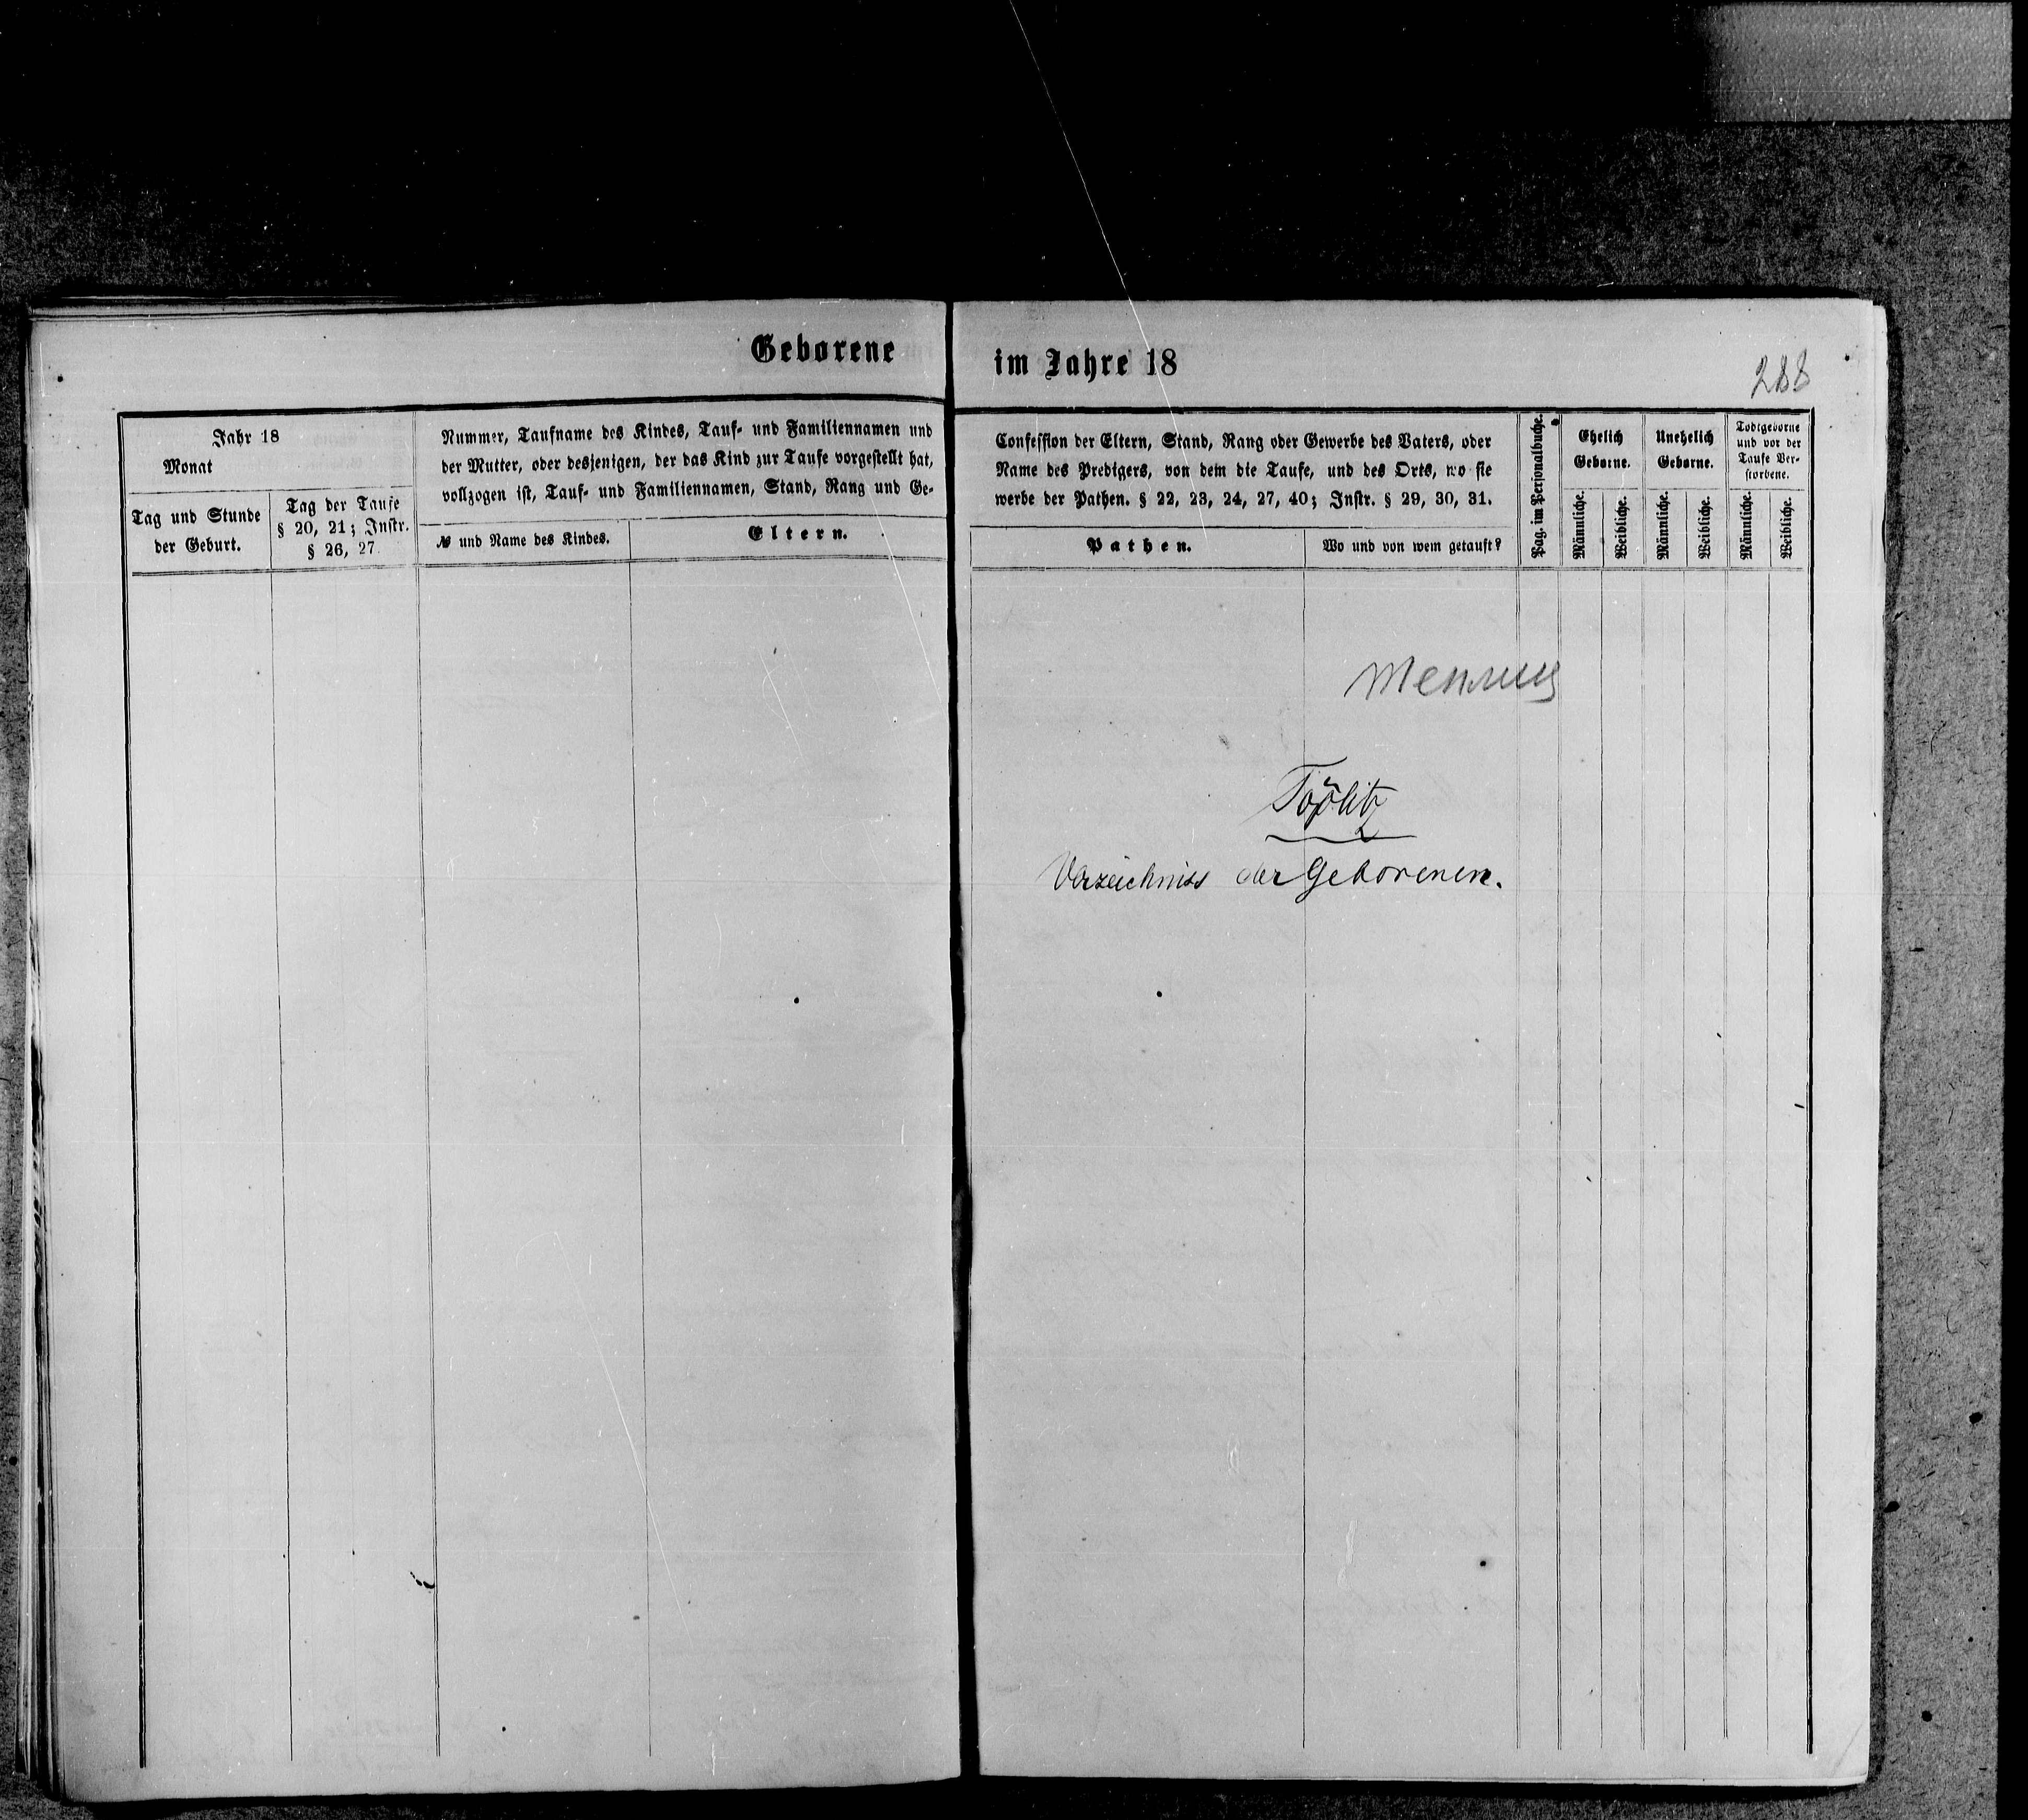 Geborene im Jahre 18
288
Jahr 18
Monat
Tag und Stunde
der Geburt.
Tag der Taufe
§ 20, 21; Instr.
§ 26, 27.
Nummer, Taufname des Kindes, Tauf- und Familiennamen und
der Mutter, oder desjenigen, der das Kind zur Taufe vorgestellt hat,
vollzogen ist, Tauf- und Familiennamen, Stand, Rang und Ge-
№ und Name des Kindes.
Eltern.
Confession der Eltern, Stand, Rang oder Gewerbe des Vaters, oder
Name des Predigers, von dem die Taufe, und des Orts, wo sie
werbe der Pathen. § 22, 23, 24, 27, 40; Instr. § 29, 30, 31.
Pathen.
Wo und von wem getauft?
Pag. im Personalbuche.
Ehelich
Geborne.
Männliche.
Weibliche.
Unehelich
Geborne.
Männliche.
Weibliche.
Todtgeborne
und vor der
Taufe Ver-
storbene.
Männliche.
Weibliche.
Теплиц
Töplitz
Verzeichniss der Geborenen.